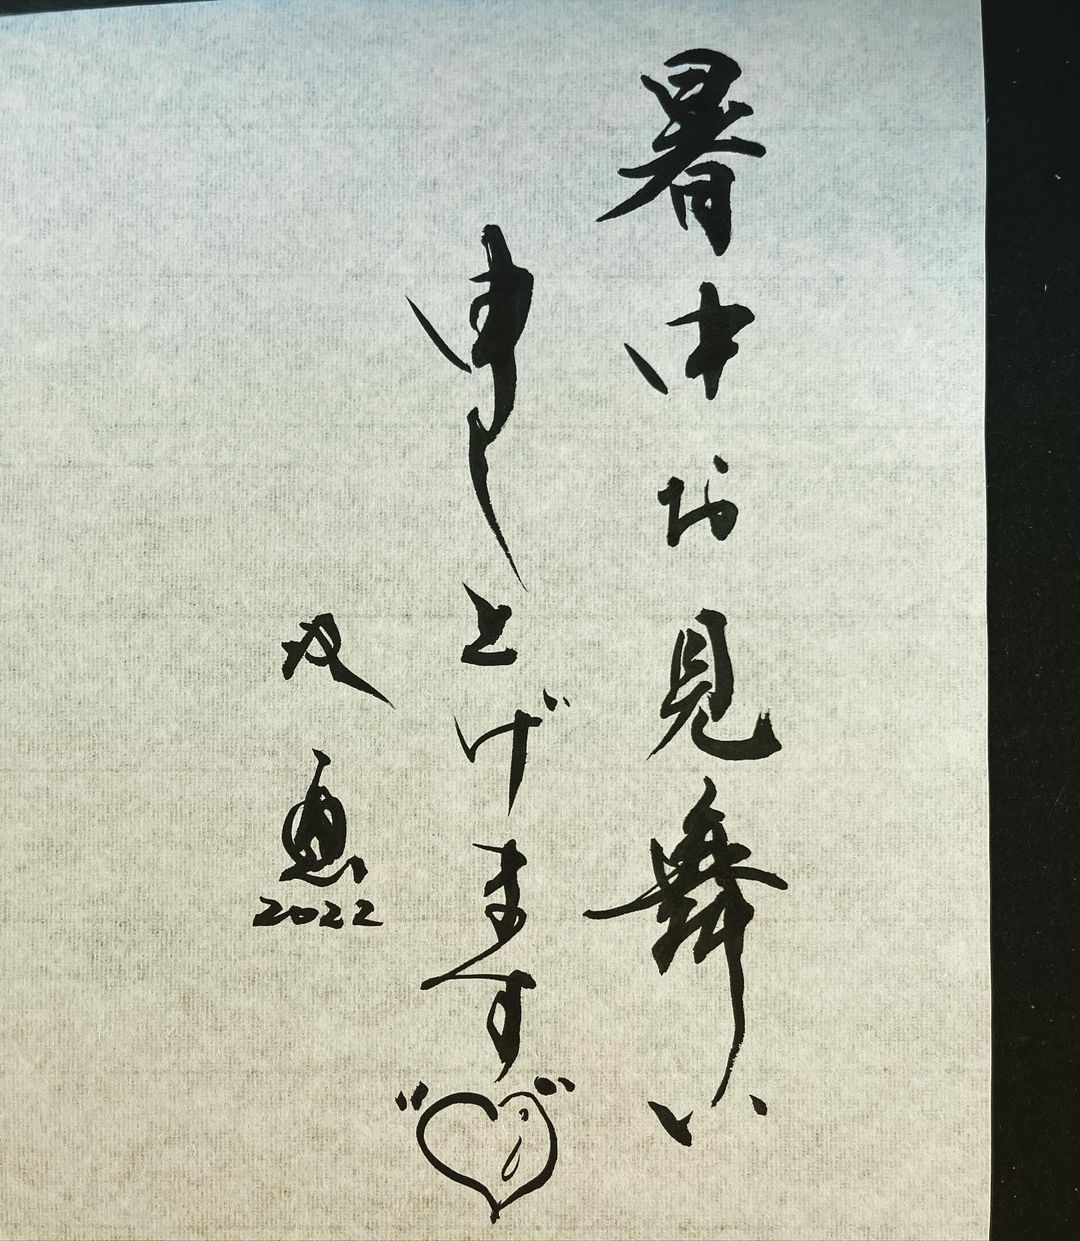 暑中お見舞い
申し上げます
2022